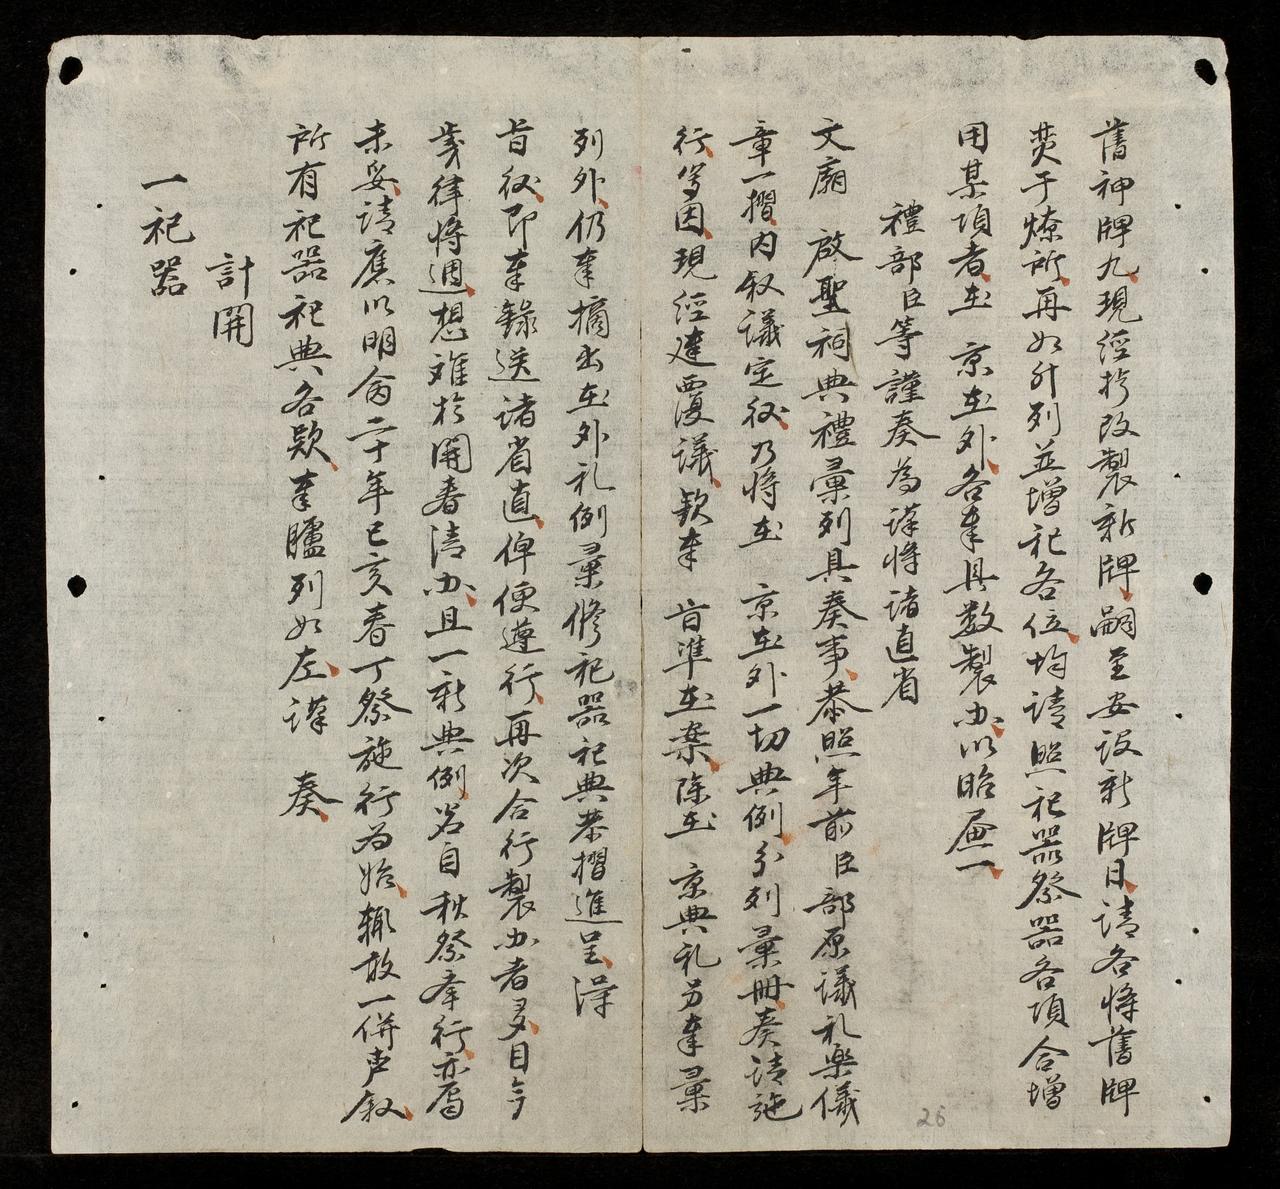 舊神牌九現經抄改製新牌嗣至安設新牌日請各將舊牌
焚于燎所再如升列並增祀各位均請照祀器祭器各項合增
用某項者在 京在外各奉具数製办以昭画一
禮部臣等謹奏為謹將諸直省
文廟 啟聖祠典禮彙列具奏事恭照年前臣部原議礼樂儀
章一摺内叙議定後乃將在 京在外一切典例分列彙冊奏請施
行等因現經建覆議欽奉 旨準在案除在 京典礼另奉彙
列外仍奉摘出在外礼例彙修祀器祀典恭摺進呈得
旨後即奉錄送諸省直俾便遵行再次合行製办者多目今
歲律將週想难於開春清办且一新典例若自秋祭奉行亦属
未妥請應以明命二十年己亥春丁祭施行为始輒敢一併声叙
所有祀器祀典各款奉臚列如左謹 奏
計開
一祀器
26